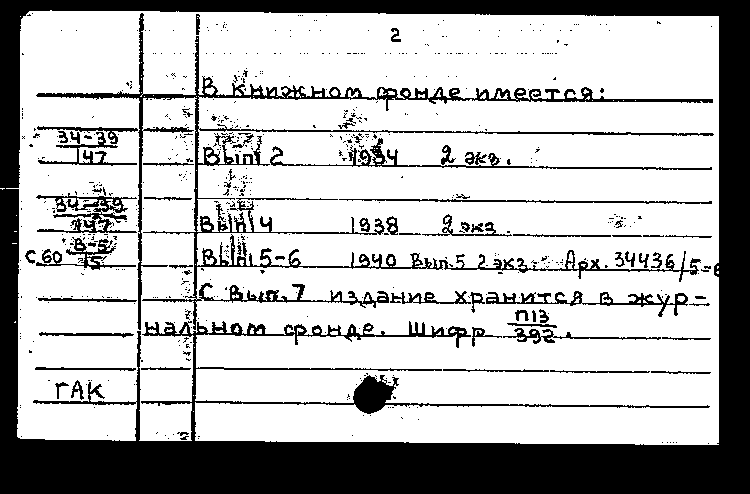 2
В книжном фонде имеется:
34-39
147
Вып. 2 1934 2 экз.
34-39
147
Вып. 4 1938 2 экз.
В-5
15
С.60 Вып. 5-6 1940 Вып. 5 2 экз. Арх. 34436/5-6
С вып. 7 издание хранится в жур-
нальном фонде. Шифр П13
392.
ГАК